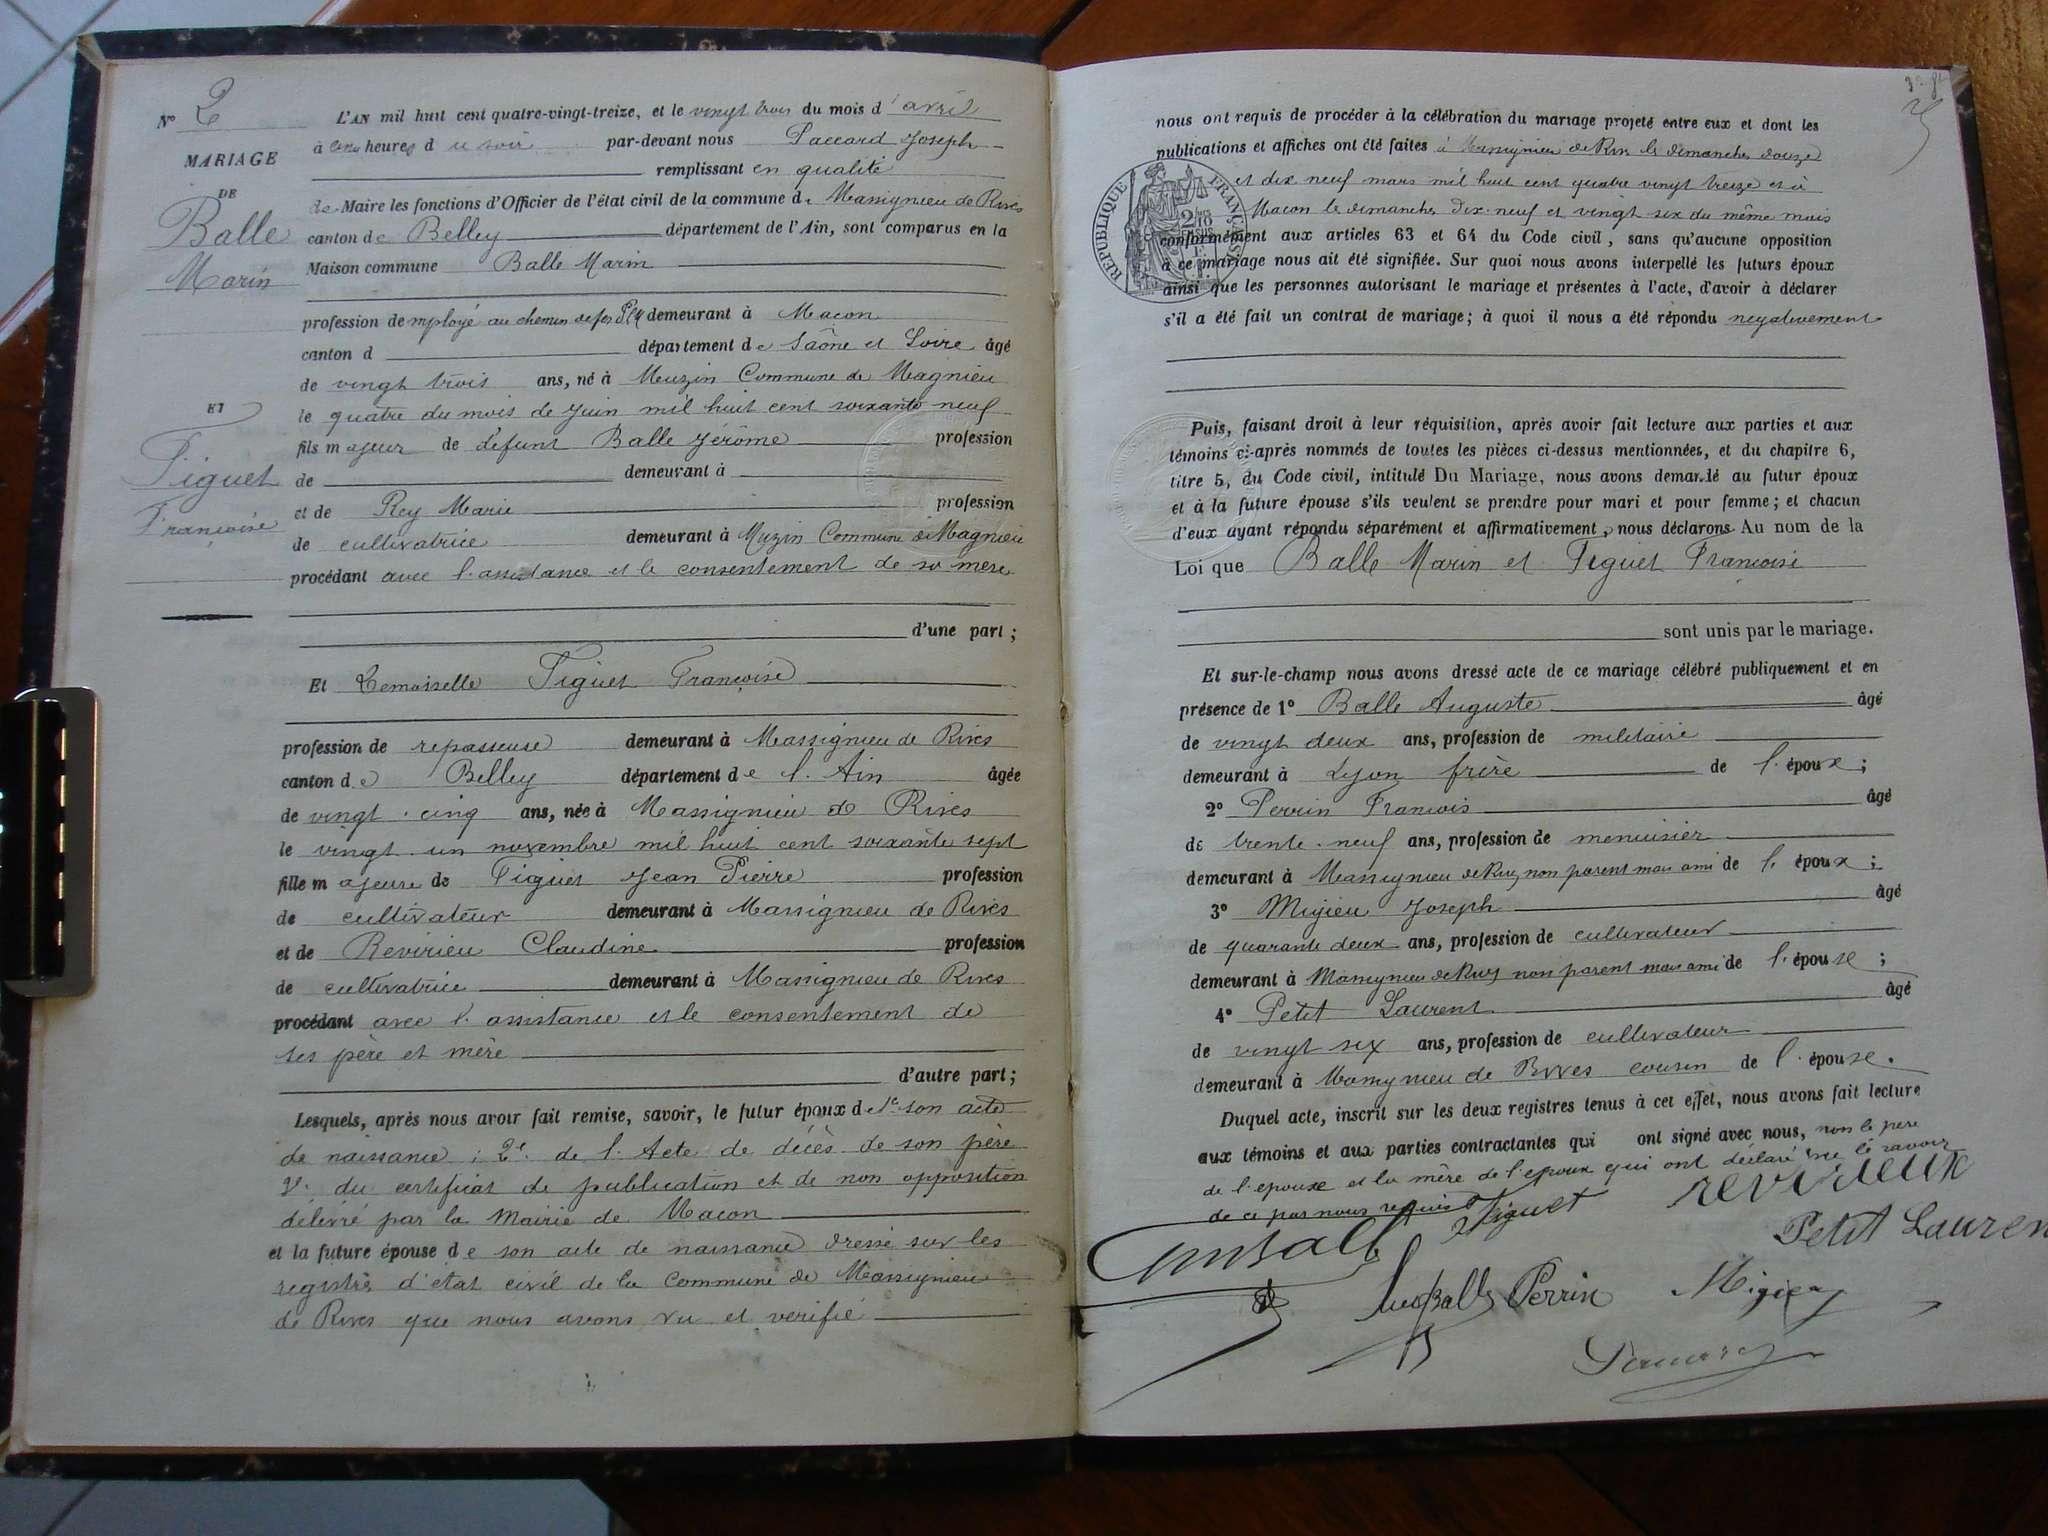 N° 2
MARIAGE
DE
Balle
Marin
ET
Tiguet
Françoise
L'AN mil huit cent quatre-vingt-treize, et le vingt trois du mois d'avril
à heures du soir par-devant nous Paccard Joseph
remplissant en qualité
de Maire les fonctions d'Officier de l'état civil de la commune de Massignieu de Rives
canton de Belley département de l'Ain, sont comparus en la
Maison commune Balle Marin
profession d'employé au chemin de fer PLM demeurant à Macon
canton d département de Saône et Loire âgé
de vingt trois ans, né à Meuzin Commune de Magnieu
le quatre du mois de Juin mil huit cent soixante neuf
fils majeur de défunt Balle Jérôme profession
de demeurant à
et de Rey Marie profession
de cultivatrice demeurant à Muzin Commune de Magnieu
procédant avec l'assistance et le consentement de sa mère
d'une part ;
Et Demoiselle Tiguet Françoise
profession de repasseuse demeurant à Massignieu de Rives
canton de Belley département de l'Ain âgée
de vingt-cinq ans, née à Massignieu de Rives
le vingt-un novembre mil huit cent soixante sept
fille majeure de Tiguet Jean Pierre profession
de cultivateur demeurant à Massignieu de Rives
et de Revirieu Claudine profession
de cultivatrice demeurant à Massignieu de Rives
procédant avec l'assistance et le consentement de
ses père et mère
d'autre part ;
Lesquels, après nous avoir fait remise, savoir, le futur époux de 1° son acte
de naissance ; 2° de l'Acte de décès de son père
3° du certificat de publication et de non opposition
délivré par la Mairie de Macon
et la future épouse de son acte de naissance dressé sur les
registres d'état civil de la Commune de Massignieu
de Rives que nous avons vu et vérifié
nous ont requis de procéder à la célébration du mariage projeté entre eux et dont les
publications et affiches ont été faites à Massignieu de Rives les dimanches douze
et dix neuf mars mil huit cent quatre vingt treize et à
Macon les dimanches dix-neuf et vingt six du même mois
conformément aux articles 63 et 64 du Code civil, sans qu'aucune opposition
à ce mariage nous ait été signifiée. Sur quoi nous avons interpellé les futurs époux
ainsi que les personnes autorisant le mariage et présentes à l'acte, d'avoir à déclarer
s'il a été fait un contrat de mariage ; à quoi il nous a été répondu négativement
RÉPUBLIQUE FRANÇAISE
Puis, faisant droit à leur réquisition, après avoir fait lecture aux parties et aux
témoins ci-après nommés de toutes les pièces ci-dessus mentionnées, et du chapitre 6,
titre 5, du Code civil, intitulé Du Mariage, nous avons demandé au futur époux
et à la future épouse s'ils veulent se prendre pour mari et pour femme ; et chacun
d'eux ayant répondu séparément et affirmativement, nous déclarons Au nom de la
Loi que Balle Marin et Tiguet Françoise
sont unis par le mariage.
Et sur-le-champ nous avons dressé acte de ce mariage célébré publiquement et en
présence de 1° Balle Auguste âgé
de vingt deux ans, profession de militaire
demeurant à Lyon frère de l'époux ;
2° Perrin François âgé
de trente-neuf ans, profession de menuisier
demeurant à Massignieu de Rives non parent mais ami de l'époux ;
3° Migieu Joseph âgé
de quarante deux ans, profession de cultivateur
demeurant à Massignieu de Rives non parent mais ami de l'épouse ;
4° Petit Laurent âgé
de vingt six ans, profession de cultivateur
demeurant à Massignieu de Rives cousin de l'épouse.
Duquel acte, inscrit sur les deux registres tenus à cet effet, nous avons fait lecture
aux témoins et aux parties contractantes qui ont signé avec nous, non le père
de l'épouse et la mère de l'époux qui ont déclaré ne le savoir
de ce par nous requis
Tiguet revirieux
Petit Laurent
Balle Perrin Migieu